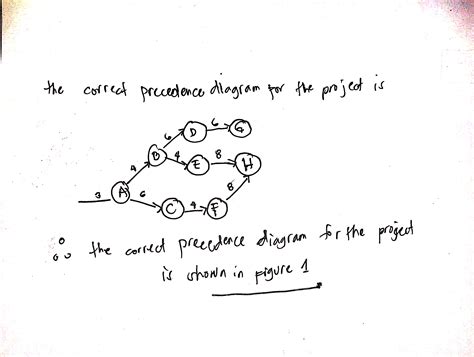 the correct precedence diagram for the project is
6 D 6 G
4 B 4 E 8 H
3 A 6 C 4 F 8
∴ the correct precedence diagram for the project
is shown in figure 1